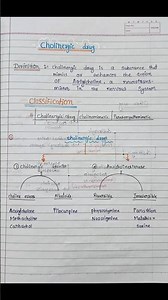 Cholinergic drug
Definition : Cholinergic drug is a substance that
mimics or enhances the action
of Acetylcholine, a neurotrans-
mitter in the nervous system.
Classification
Cholinergic drug / Cholinomimetic / Parasympathomimetic
Cholinergic drug
① Cholinergic
② Anticholinesterase
Choline esters Alkaloids Reversible Irreversible
Acetylcholine Pilocarpine physostigmine Parathion
Methacholine Neostigmine Malathion
Carbachol